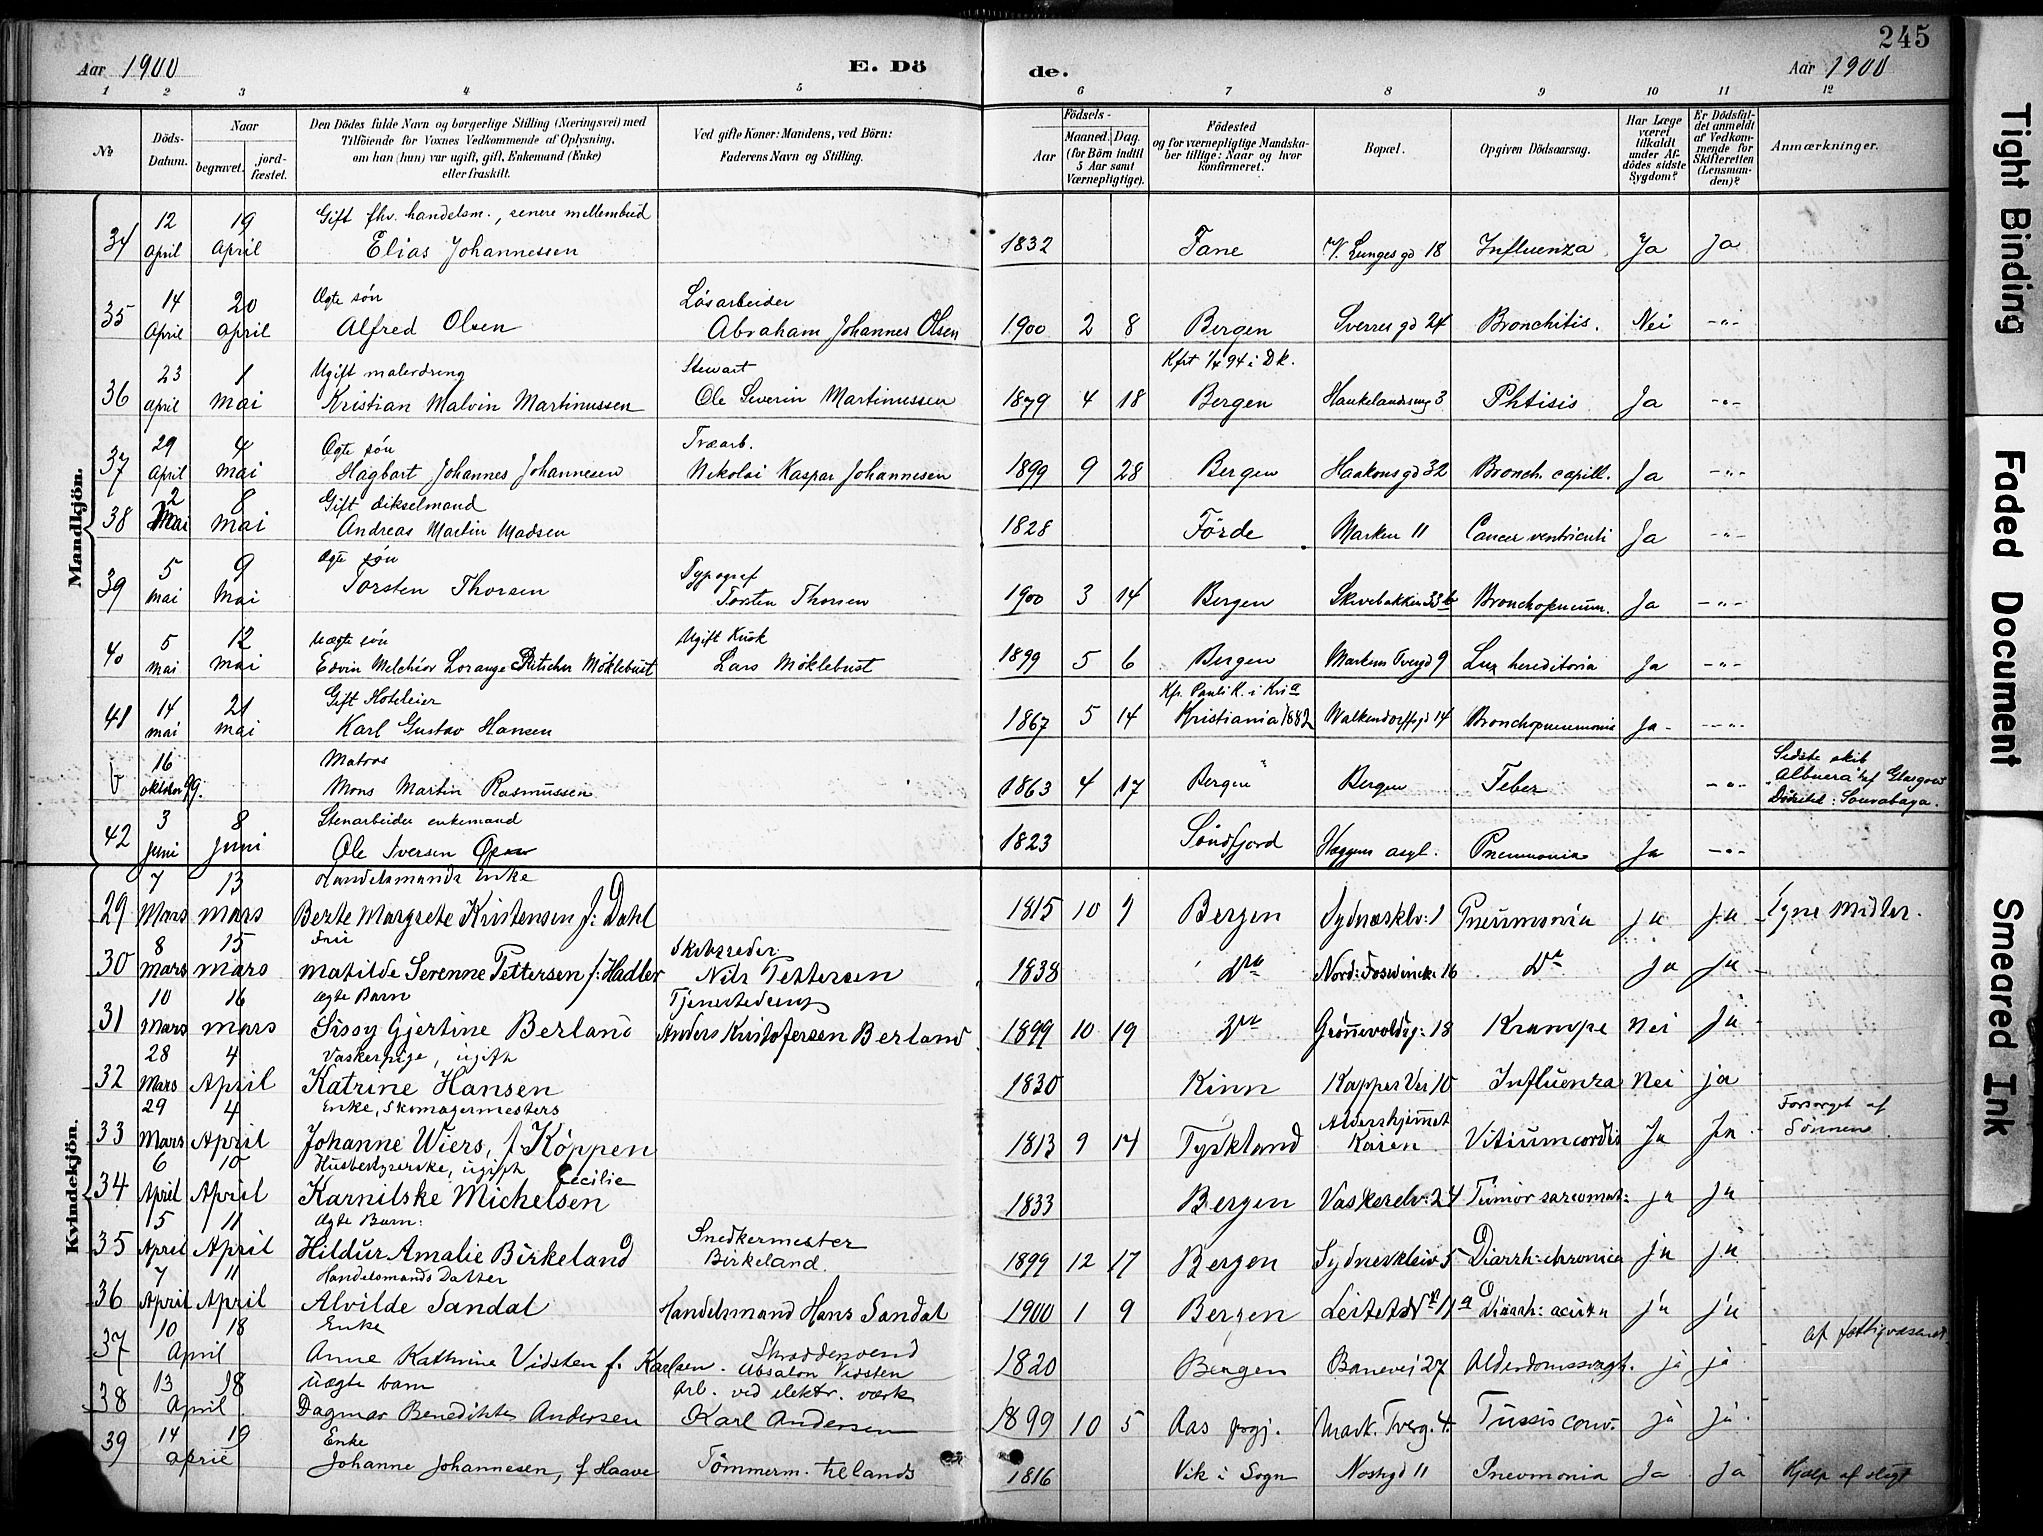 245
Aar 1900
E. Dö
de.
Aar 1900
1 2 3 4 5 6 7 8 9 10 11 12
No
Döds-
Datum.
Naar
begravet.
jord-
fæstet.
Den Dödes fulde Navn og borgerlige Stilling (Næringsvei) med
Tilföiende for Voxnes Vedkommende af Oplysning,
om han (hun) var ugift, gift, Enkemand (Enke)
eller fraskilt.
Ved gifte Koner: Mandens, ved Börn:
Faderens Navn og Stilling.
Födsels-
Aar
Maaned. Dag.
(for Börn indtil
5 Aar samt
Værnepligtige).
Födested
og for værnepligtige Mandska-
ber tillige: Naar og hvor
konfirmeret.
Bopæl.
Opgiven Dödsaarsag.
Har Læge
været
tilkaldt
under Af-
dödes sidste
Sygdom?
Er Dödsfal-
det anmeldt
af Vedkom-
mende for
Skifteretten
(Lensman-
den)?
Anmærkninger.
Mandkjön.
12 19 Gift fhv. handelsm., senere mellembud
34 april april Elias Johannessen 1832 Fane N. Lunges gd 18 Influenza Ja Ja
14 20 Ægte søn Løsarbeider
35 April april Alfred Olsen Abraham Johannes Olsen 1900 2 8 Bergen Sverres gd 24 Bronchitis. Nei -"-
23 1 Ugift malerdreng Stewart Kfrt 94 i Dk.
36 april mai Kristian Malvin Martinussen Ole Severin Martinussen 1879 4 18 Bergen Haukelandsveg 3 Phtisis Ja -"-
29 4 Ægte søn Træarb.
37 April mai Hagbart Johannes Johannesen Nikolai Kaspar Johannesen 1899 9 28 Bergen Haakons gd 32 Bronch. capill. Ja -"-
2 8 Gift dikselmand
38 Mai mai Andreas Martin Madsen 1828 Førde Marken 11 Cancer ventriculi Ja -"-
5 9 Ægte søn Typograf
39 mai Mai Torsten Thorsen Torsten Thorsen 1900 3 14 Bergen Skivebakken 33 b Bronchopneum. Ja -"-
5 12 Uægte søn Ugift Kusk
40 mai mai Edvin Melchior Lorange Møklebust Lars Møklebust 1899 5 6 Bergen Markens Tvergd 9 Lux hereditoria Ja -"-
14 21 Gift Hoteleier Kfr. Pauli K. i Kria
41 mai mai Karl Gustav Hansen 1867 5 14 Kristiania 1882 Walkendorffsgd 14 Bronchopneumonia Ja -"-
16 Matros Sidste skib
b oktober 99. Mons Martin Rasmussen 1863 4 17 Bergen Bergen Feber -"- "Albuera" af Glasgow
Dødssted: Sourabaya.
3 8 Stenarbeider enkemand
42 Juni Juni Ole Iversen 1823 Søndfjord Haggens asyl. Pneumonia Ja -"-
Kvindekjön.
7 13 Handelsmands Enke
29 Mars mars Berte Margrete Kristensen f: Dahl 1815 10 9 Bergen Sydnæsklv: 1 Pneumonia ja ja Egne Midler.
8 15 Frue Skibsreder
30 Mars mars Matilde Serenne Pettersen f: Hadler Nils Pettersen 1838 Do Nord: Foswinck: 16 Do ja ja
10 16 Ægte Barn Tjenestedreng
31 Mars mars Sissy Gjertine Berland Anders Kristofersen Berland 1899 10 19 Do Grønnevoldsg: 18 Krampe nei ja
28 4 Vaskerpige, ugift
32 Mars April Katrine Hansen 1830 Kinn Kappes Vei 10 Influenza nei ja
29 4 Enke, Skomagermesters Aldershjemmet Forsørget af
33 Mars April Johanne Wiers, f Köppen 1813 9 14 Tyskland Kaien Vitium cordis Ja Ja Sønnen
6 10 Husbestyrerske, ugift Cecilie
34 April April Karnilske Michelsen 1833 Bergen Vaskerelv: 24 Tumor sarcomat: ja ja
5 11 Ægte Barn: Snedkermester
35 April April Hildur Amalie Birkeland Birkeland. 1899 12 17 Bergen Sydneskleiv 5 Diarrh: chronica ja ja
7 11 Handelsmands Datter
36 April April Alvilde Sandal Handelsmand Hans Sandal 1900 1 9 Bergen Leitet No 11 a Diarrh: acuta ja ja
10 18 Enke Skræddersvend af fattigvæsenet
37 April Anne Kathrine Vidsten f. Karlsen. Absalon Vidsten 1820 Bergen Banevei 27 Alderdomssvagh. ja ja
13 18 uægte barn Arb. ved elektr. værk
38 April Dagmar Benedikte Andersen Karl Andersen 1899 10 5 Aas prgj. Mark. Tverg. 4. Tussis conv. ja ja
14 19 Enke
39 april Johanne Johannesen, f Haave Tømmerm. tillands 1816 Vik i Sogn Nostegd 11 Pneumonia Ja Ja Hjælp af slægt
Tight Binding
Faded Document
Smeared Ink